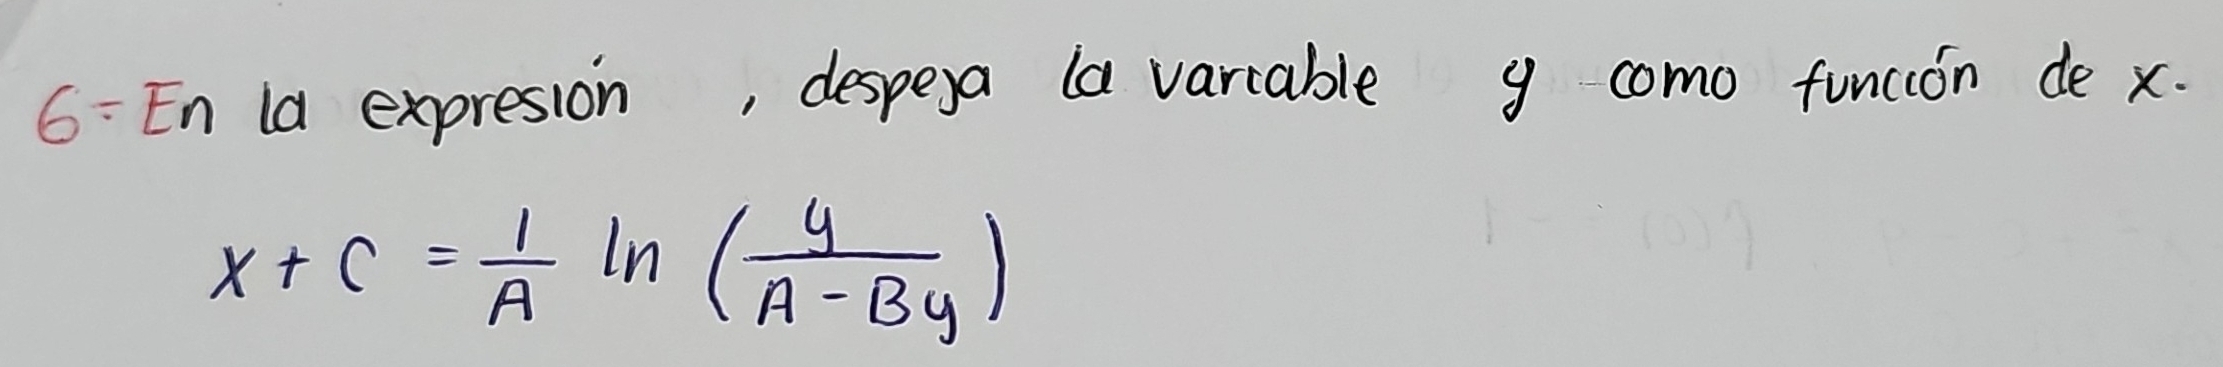 6- En la expresión , despeja la variable y como función de x.
x + C = 1/A ln (y/(A - By))